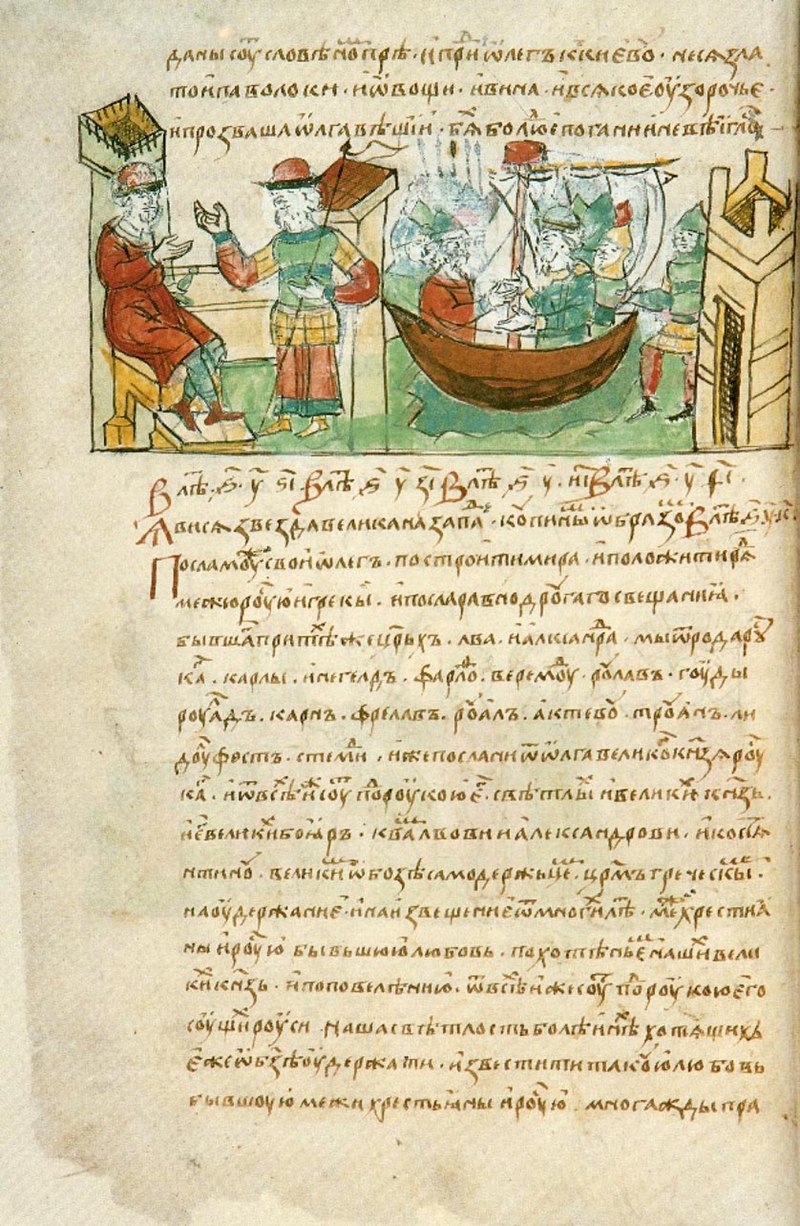 даны соуⷮ словѣноⷨ прѣ · и прⷣи ѡлегъ к киевоⷹ · несѧ зла
то и паволоки · и ѡвощи · и вина · и всѧкое оузорочье ·
и прозваша ѡлга вѣщіи · бѧ бо люⷣе погани и невѣигла
В лѣⷮ ҂ѕ҃ у҃ ѕ҃і В лѣⷮ ҂ѕ҃ у҃ з҃і В лѣⷮ ҂ѕ҃ у҃ и҃і В лѣⷮ ҂ѕ҃ у҃ ѳ҃і ·
Ависѧ звезда велика на запаⷣ · копииныⷨ ѡбразоⷨ В лѣⷮ ҂ѕ҃ у҃ к҃
Посла моуⷤ свои ѡлегъ · построити мира · и положити рѧⷣ
межю роуⷭю и грекы · и посла равно дроугаго свещаниѧ ·
бывшаⷢ при тѣⷯже цр҃ьхъ · лва · и алкⷭіаⷩдра · мы ѿ рода роуⷭ
каⷢ · карлы · инегелдъ · фарлоⷴ · веремоуⷣ · роулавъ · гоуды
роуалдъ · карнъ · фрелавъ · роуалъ · актевоу · троуанъ · ли
доуⷧ фостъ · стемиⷣ · иже послани ѿ ѡлга великоⷢ кн҃зѧ роуⷭ
каⷢ · и ѿ всѣⷯ иⷤ соуⷮ поⷣ роукою еⷢ · свѣтлыⷯ и великиⷯ кн҃зь ·
и еⷢ великиⷯ боиаръ · к ваⷨ лвови и александрови · и костѧ
нтиноу · великиⷨ ѡ боз҃ѣ самодержьцеⷨ · цр҃мъ греческыⷨ ·
на оудержание · и на извещение ѿ многиⷯ лѣⷮ · меⷤ хрестиа
ны и роуⷭю бывьшюю любовь · похотѣньеⷨ нашиⷯ вели
киⷯ кн҃зь · и по повелѣнию · ѿ всѣⷯ иже соуⷮ поⷣ роукою его
соущиⷯ роуси наша свѣтлость болѣ инѣⷯ хотѧщих
еже ѡ боз҃ѣ оудержати · и известити такоую любовь
бывшоую межи хрестьаны и роуⷭю · многажды пра